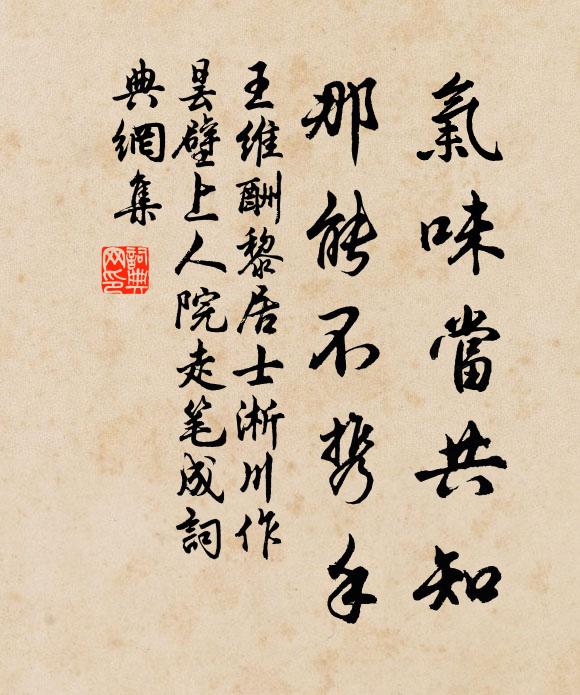 氣味當共知
那能不携手
王維酬黎居士淅川作
曇壁上人院走笔成詞
典網集
詞典网印